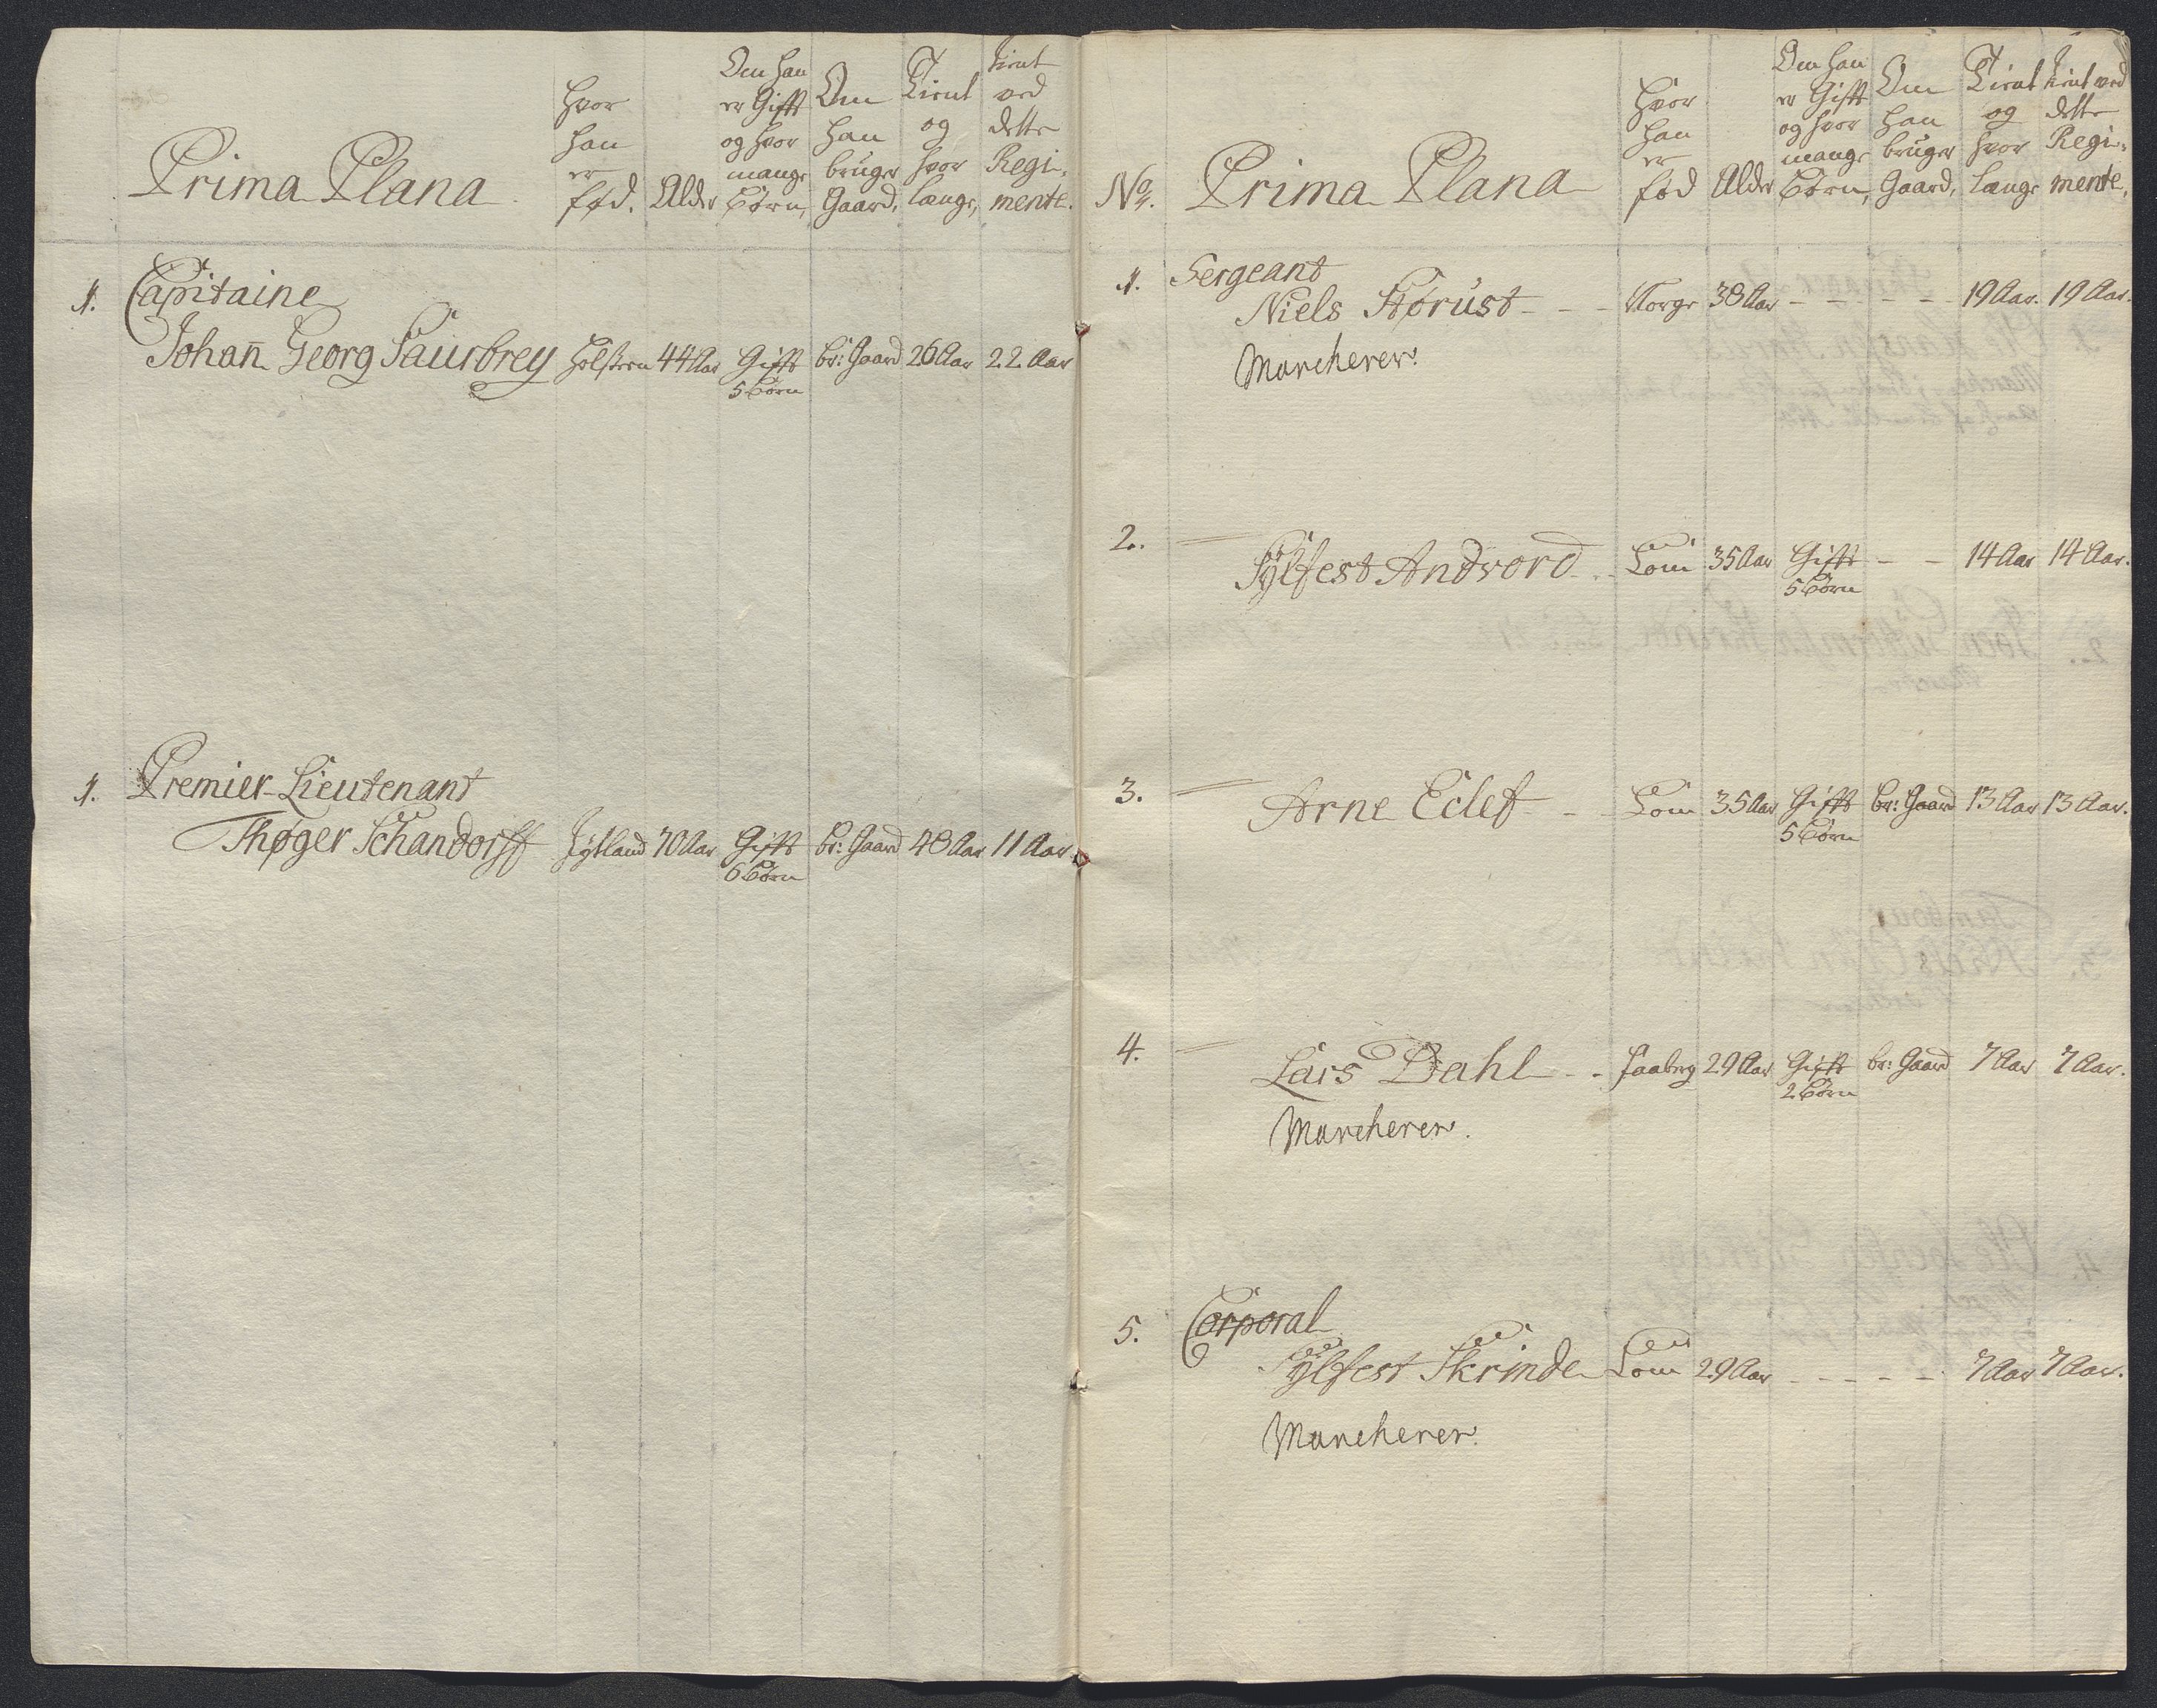 Prima Plana
Hvor han er fød.
Alder
Om han er Gifft og hvor mange Børn,
Om han bruger Gaard,
Tient og hvor længe,
tient ved dette Regimente.
1. Capitaine
Johan̄ Georg Saurbrey Holsteen 44 Aar Gifft 5 Børn br: Gaard 26 Aar 22 Aar
1. Premier-Lieutenant
Thøger Schandorff Jytland 70 Aar Gifft 6 Børn br: Gaard 48 Aar 11 Aar
No. Prima Plana
Hvor han er fød
Alder
Om han er Gifft og hvor mange Børn,
Om han bruger Gaard,
Tient og hvor længe
tient ved dette Regimente,
1. Sergeant
Niels Størust - - - Norge 38 Aar - - - - - 19 Aar. 19 Aar.
Marcherer.
2. Sÿlfest Andvord - - Lom 35 Aar Gifft 5 Børn - - 14 Aar 14 Aar.
3. Arne Eclef - - Lom 35 Aar Gifft 5 Børn br: Gaard 13 Aar 13 Aar.
4. Lars Dahl - - Faaberg 29 Aar Gifft 2 Børn br: Gaard 7 Aar 7 Aar.
Marcherer.
5. Corporal
Sÿlfest Skrinde Lom 29 Aar - - - - - 7 Aar 7 Aar.
Marcherer.